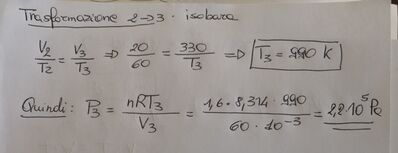 Trasformazione 2→3 · isobara
V₂/T₂ = V₃/T₃ ⇒ 20/60 = 330/T₃ ⇒ T₃ = 990 K
Quindi: P₃ = nRT₃/V₃ = 1,6 · 8,314 · 990/60 · 10⁻³ = 2,2 · 10⁵ Pa